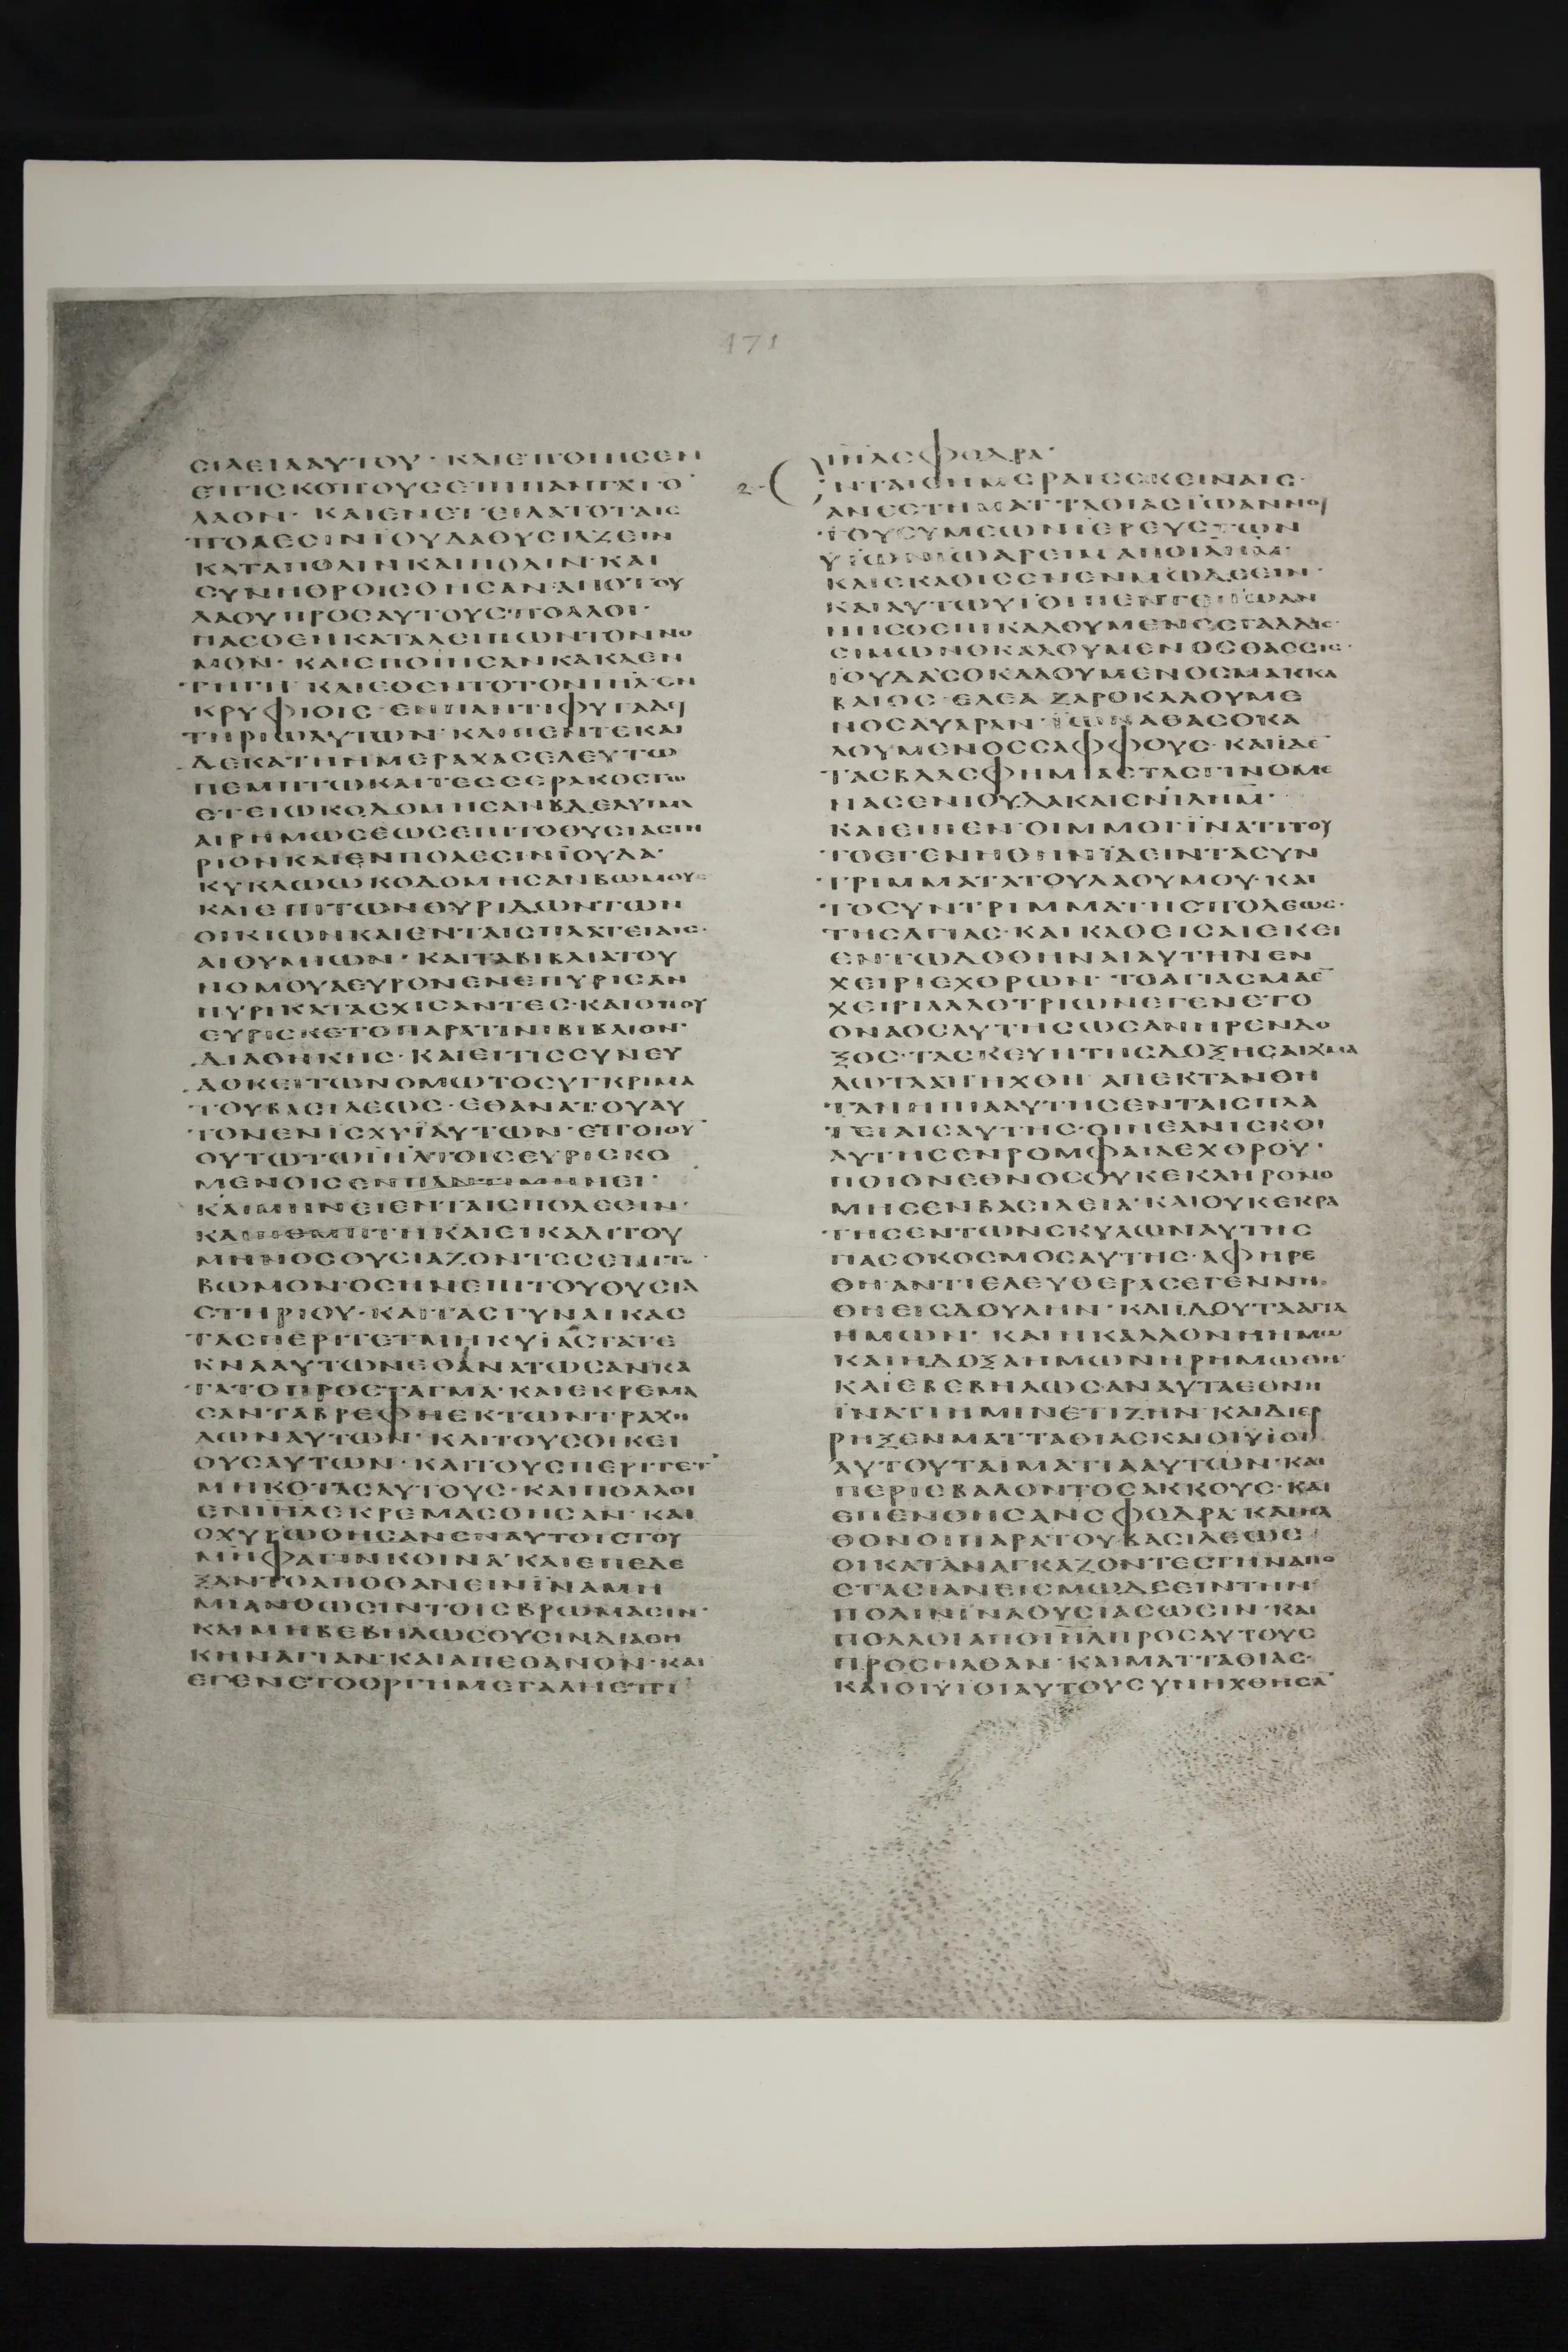 171
CΙΛΕΙΑΑΥΤΟΥ· ΚΑΙΕΠΟΙΗCΕΝ
ΕΠΙCΚΟΠΟΥCΕΠΙΠΑΝΤΑΤΟ
ΛΑΟΝ· ΚΑΙΕΝΕΤΕΙΛΑΤΟΤΑΙC
ΠΟΛΕCΙΝΙΟΥΔΑΘΥCΙΑΖΕΙΝ
ΚΑΤΑΠΟΛΙΝΚΑΙΠΟΛΙΝ· ΚΑΙ
CΥΝΗΘΡΟΙCΘΗCΑΝ·ΑΠΟΤΟΥ
ΛΑΟΥΠΡΟCΑΥΤΟΥC·ΠΟΛΛΟΙ·
ΠΑCΟΕΓΚΑΤΑΛΕΙΠΩΝΤΟΝΝΟ
ΜΟΝ· ΚΑΙΕΠΟΙΗCΑΝΚΑΚΑΕΝ
ΤΗΓΗ· ΚΑΙΕΘΕΝΤΟΤΟΝΙΗΛΕΝ
ΚΡΥΦΙΟΙC·ΕΝΠΑΝΤΙΦΥΓΑΔΗ
ΤΗΡΙΩΑΥΤΩΝ·ΚΑΙΠΕΝΤΕΚΑΙ
ΔΕΚΑΤΗΗΜΕΡΑΧΑCΕΛΕΥΤΩ
ΠΕΜΠΤΩΚΑΙΤΕCCΕΡΑΚΟCΤΩ
ΕΤΕΙΩΚΟΔΟΜΗCΑΝΒΔΕΛΥΓΜΑ
ΑΙΡΗΜΩCΕΩCΕΠΙΤΟΘΥCΙΑCΤΗ
ΡΙΟΝΚΑΙΕΝΠΟΛΕCΙΝΪΟΥΔΑ·
ΚΥΚΛΩΩΚΟΔΟΜΗCΑΝΒΩΜΟΥC
ΚΑΙΕΠΙΤΩΝΘΥΡΙΔΩΝΤΩΝ
ΟΙΚΙΩΝΚΑΙΕΝΤΑΙCΠΛΑΤΕΙΑΙC·
ΑΙΘΥΜΙΩΝ· ΚΑΙΤΑΒΙΒΛΙΑΤΟΥ
ΝΟΜΟΥΑΕΥΡΟΝΕΝΕΠΥΡΙCΑΝ
ΠΥΡΙΚΑΤΑCΧΙCΑΝΤΕC·ΚΑΙΟΠΟΥ
ΕΥΡΙCΚΕΤΟΠΑΡΑΤΙΝΙΒΙΒΛΙΟΝ·
ΔΙΑΘΗΚΗC·ΚΑΙΕΙΤΙCCΥΝΕΥ
ΔΟΚΕΙΤΩΝΟΜΩΤΟCΥΓΚΡΙΜΑ
ΤΟΥΒΑCΙΛΕΩC·ΕΘΑΝΑΤΟΥΑΥ
ΤΟΝΕΝΙCΧΥΪΑΥΤΩΝ·ΕΠΟΙΟΥ
ΟΥΤΩΤΩΙΗΛΤΟΙCΕΥΡΙCΚΟ
ΜΕΝΟΙCΕΝΠΑΝΤΙΜΗΝΕΙ·
ΚΑΙΜΗΝΕΙΕΝΤΑΙCΠΟΛΕCΙΝ·
ΚΑΙΠΕΜΠΤΗΚΑΙΕΙΚΑΔΙΤΟΥ
ΜΗΝΟCΘΥCΙΑΖΟΝΤΕCΕΠΙΤΟ
ΒΩΜΟΝ·ΟCΗΝΕΠΙΤΟΥΘΥCΙΑ
CΤΗΡΙΟΥ·ΚΑΙΤΑCΓΥΝΑΙΚΑC
ΤΑCΠΕΡΙΤΕΤΜΗΚΥΙΑCΤΑΤΕ
ΚΝΑΑΥΤΩΝΕΘΑΝΑΤΩCΑΝΚΑ
ΤΑΤΟΠΡΟCΤΑΓΜΑ·ΚΑΙΕΚΡΕΜΑ
CΑΝΤΑΒΡΕΦΗΕΚΤΩΝΤΡΑΧΗ
ΛΩΝΑΥΤΩΝ· ΚΑΙΤΟΥCΟΙΚΕΙ
ΟΥCΑΥΤΩΝ· ΚΑΙΤΟΥCΠΕΡΙΤΕΤ
ΜΗΚΟΤΑCΑΥΤΟΥC·ΚΑΙΠΟΛΛΟΙ
ΕΝΙΗΛΕΚΡΕΜΑCΘΗCΑΝ·ΚΑΙ
ΟΧΥΡΩΘΗCΑΝΕΝΑΥΤΟΙCΤΟΥ
ΜΗΦΑΓΙΝΚΟΙΝΑ·ΚΑΙΕΠΕΔΕ
ΞΑΝΤΟΑΠΟΘΑΝΕΙΝΪΝΑΜΗ
ΜΙΑΝΘΩCΙΝΤΟΙCΒΡΩΜΑCΙΝ·
ΚΑΙΜΗΒΕΒΗΛΩCΟΥCΙΝΔΙΑΘΗ
ΚΗΝΑΓΙΑΝ·ΚΑΙΑΠΕΘΑΝΟΝ·ΚΑΙ
ΕΓΕΝΕΤΟΟΡΓΗΜΕΓΑΛΗΕΠΙ
ΙΗΛCΦΟΔΡΑ·
2- ΕΝΤΑΙCΗΜΕΡΑΙCΕΚΕΙΝΑΙC·
ΑΝΕCΤΗΜΑΤΤΑΘΙΑCΪΩΑΝΝΟΥ
ΤΟΥCΥΜΕΩΝΙΕΡΕΥCΤΩΝ
ΥΙΩΝΙΩΑΡΕΙΜΑΠΟΙΛΗΜ·
ΚΑΙΕΚΑΘΙCΕΝΕΝΜΩΔΕΕΙΝ·
ΚΑΙΑΥΤΩΥΙΟΙΠΕΝΤΕΙΩΑΝ
ΝΗCΟΕΠΙΚΑΛΟΥΜΕΝΟCΓΑΔΔΙC·
CΙΜΩΝΟΚΑΛΟΥΜΕΝΟCΘΑCCΙC·
ΙΟΥΔΑCΟΚΑΛΟΥΜΕΝΟCΜΑΚΚΑ
ΒΑΙΟC·ΕΛΕΑΖΑΡΟΚΑΛΟΥΜΕ
ΝΟCΑΥΑΡΑΝ·ΙΩΝΑΘΑCΟΚΑ
ΛΟΥΜΕΝΟCCΑΦΦΟΥC·ΚΑΙΙΔΕ
ΤΑCΒΛΑCΦΗΜΙΑCΤΑCΓΙΝΟΜΕ
ΝΑCΕΝΙΟΥΔΑΚΑΙΕΝΪΛΗΜ·
ΚΑΙΕΙΠΕΝ·ΟΙΜΜΟΙΪΝΑΤΙΤΟΥ
ΤΟΕΓΕΝΝΗΘΗΝΪΔΕΙΝΤΑCΥΝ
ΤΡΙΜΜΑΤΑΤΟΥΛΑΟΥΜΟΥ·ΚΑΙ
ΤΟCΥΝΤΡΙΜΜΑΤΗCΠΟΛΕΩC·
ΤΗCΑΓΙΑC·ΚΑΙΚΑΘΕΙCΑΙΕΚΕΙ
ΕΝΤΩΔΟΘΗΝΑΙΑΥΤΗΝΕΝ
ΧΕΙΡΙΕΧΘΡΩΝ· ΤΟΑΓΙΑCΜΑΕ
ΧΕΙΡΙΑΛΛΟΤΡΙΩΝΕΓΕΝΕΤΟ
ΟΝΑΟCΑΥΤΗCΩCΑΝΗΡΕΝΔΟ
ΞΟC·ΤΑCΚΕΥΗΤΗCΔΟΞΗCΑΙΧΜΑ
ΛΩΤΑΧΤΗΧΘΗ ΑΠΕΚΤΑΝΘΗ
ΤΑΝΗΠΙΑΑΥΤΗCΕΝΤΑΙCΠΛΑ
ΤΕΙΑΙCΑΥΤΗC·ΟΙΝΕΑΝΙCΚΟΙ
ΑΥΤΗCΕΝΡΟΜΦΑΙΑΕΧΘΡΟΥ·
ΠΟΙΟΝΕΘΝΟCΟΥΚΕΚΛΗΡΟΝΟ
ΜΗCΕΝΒΑCΙΛΕΙΑ·ΚΑΙΟΥΚΕΚΡΑ
ΤΗCΕΝΤΩΝCΚΥΛΩΝΑΥΤΗC
ΠΑCΟΚΟCΜΟCΑΥΤΗC·ΑΦΗΡΕ
ΘΗ·ΑΝΤΙΕΛΕΥΘΕΡΑCΕΓΕΝΝΗ
ΘΗΕΙCΔΟΥΛΗΝ·ΚΑΙΙΔΟΥΤΑΑΓΙΑ
ΗΜΩΝ· ΚΑΙΗΚΑΛΛΟΝΗΗΜΩ
ΚΑΙΗΔΟΞΑΗΜΩΝΗΡΗΜΩΘΗ·
ΚΑΙΕΒΕΒΗΛΩCΑΝΑΥΤΑΕΘΝΗ
ΪΝΑΤΙΗΜΙΝΕΤΙΖΗΝ·ΚΑΙΔΙΕΡ
ΡΗΞΕΝΜΑΤΤΑΘΙΑCΚΑΙΟΙΥΙΟΙ
ΑΥΤΟΥΤΑΙΜΑΤΙΑΑΥΤΩΝ·ΚΑΙ
ΠΕΡΙΕΒΑΛΟΝΤΟCΑΚΚΟΥC·ΚΑΙ
ΕΠΕΝΘΗCΑΝCΦΟΔΡΑ·ΚΑΙΗΛ
ΘΟΝΟΙΠΑΡΑΤΟΥΒΑCΙΛΕΩC
ΟΙΚΑΤΑΝΑΓΚΑΖΟΝΤΕCΤΗΝΑΠΟ
CΤΑCΙΑΝΕΙCΜΩΔΕΕΙΝΤΗΝ
ΠΟΛΙΝΪΝΑΘΥCΙΑCΩCΙΝ·ΚΑΙ
ΠΟΛΛΟΙΑΠΟΙΗΛΠΡΟCΑΥΤΟΥC
ΠΡΟCΗΛΘΑΝ·ΚΑΙΜΑΤΤΑΘΙΑC·
ΚΑΙΟΙΥΙΟΙΑΥΤΟΥCΥΝΗΧΘΗCΑ